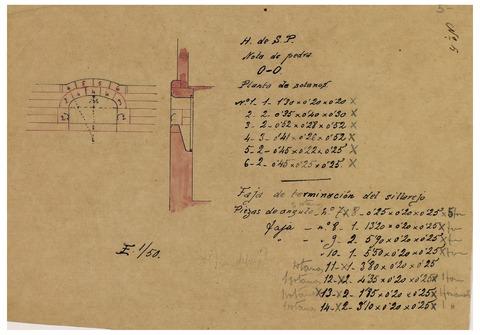 5-
Nº 5
H. de S. P.
Nota de pedra
O-O
Planta de sotanos
Nº1. 1- 1'30 x 0'20 x 0'20 X
2- 2- 0'35 x 0'40 x 0'30 X
3- 2- 0'52 x 0'28 x 0'52 X
4- 3- 0'41 x 0'26 x 0'52 X
5- 2- 0'45 x 0'22 x 0'25 X
6- 2- 0'45 x 0'25 x 0'25 X
Faja de terminación del sillarejo
Piezas de angulo - nº 7 X 8 - 0'25 x 0'20 x 0'25
Faja - nº 8- 1- 1'20 x 0'20 x 0'25 X
" " 9- 2- 5'90 x 0'20 x 0'25 X
" " 10- 1- 5'50 x 0'20 x 0'25 X
11- X 1- 3'80 x 0'20 x 0'25
12- X 2- 4'35 x 0'20 x 0'25 X
X 13- X 2- 1'85 x 0'20 x 0'25 X
14- X 2- 3'10 x 0'20 x 0'25 X
E. 1/50.